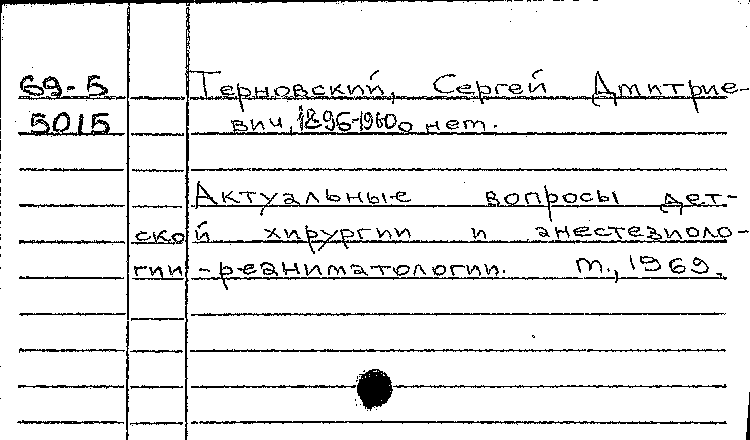 69-5 Терновский, Сергей Дмитрие-
5015 вич, 1896-1960 о нет.
Актуальные вопросы дет-
ской хирургии и анестезиоло-
гии-реаниматологии. т., 1969.